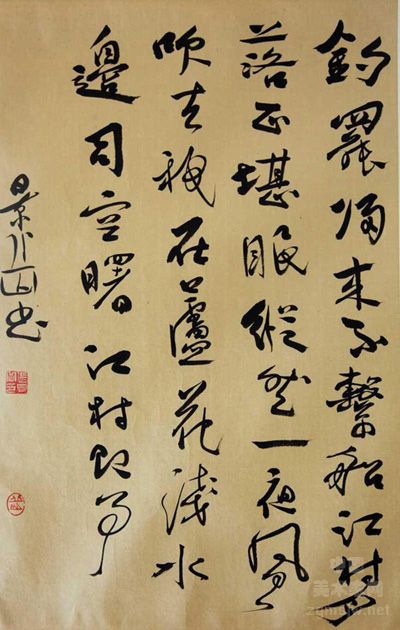 釣罷歸來不繫船江村月
落正堪眠縱然一夜風
吹去秪在蘆花淺水
邊司空曙江村即事
景山書